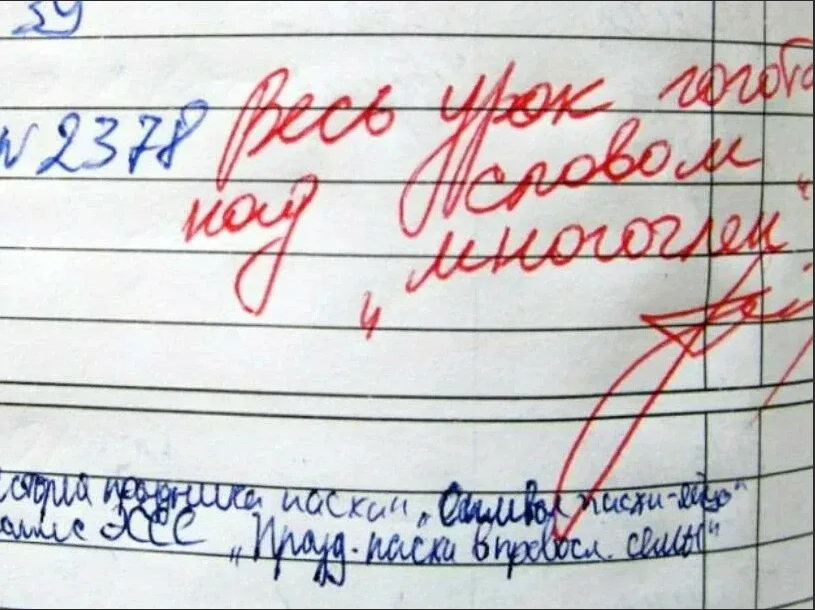 39
№2378 Весь урок гогота
над словом
„многочлен“
стория праздника пасхи „Символ пасхи-яйцо“
ЖССС „Празд. пасхи в правосл. семьи“